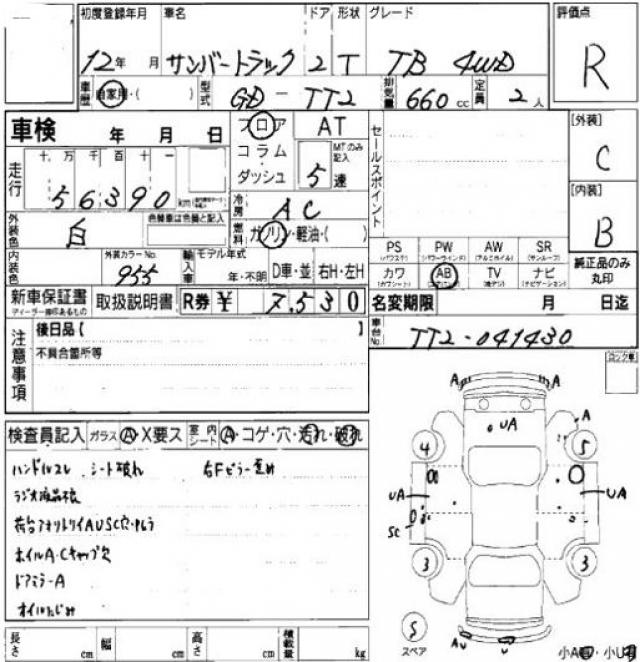 初度登録年月 車名 ドア 形状 グレード 評価点
12年 月 サンバートラック 2 T TB 4WD R
車歴 自家用・( ) 型式 GD-TT2 排気量 660cc 定員 2人
車検 年 月 日 フロア AT セールスポイント [外装]
コラム・ダッシュ MTのみ記入 5速 C
走行 十万千百十一 56390 km
冷房 AC [内装]
外装色 白 色替車は色替と記入 燃料 ガソリン・軽油・( ) B
PS (パワステ) PW (パワーウインド) AW (アルミホイル) SR (サンルーフ)
内装色 外装カラーNo. 955 輸入車 モデル年式 年・不明 D車・並 右H・左H カワ (カワシート) AB TV ナビ (ナビゲーション) 純正品のみ丸印
新車保証書 取扱説明書 R券 ¥ 7,530 名変期限 月 日迄
注意事項 後日品【 】 車台No. TT2-041430
不具合箇所等 ロック車
検査員記入 ガラス A・X要ス 室内シート A・コゲ・穴・汚れ・破れ
ハンドルスレ シート破れ 右Fピラー歪み
ラジオ液晶不良
ホイルA・Cキャップ欠
ドアミラーA
オイルにじみ
A A
UA A
4 5
UA UA
SC
3 3
S スペア AU U 小A 小U
長さ cm 幅 cm 高さ cm 積載量 kg